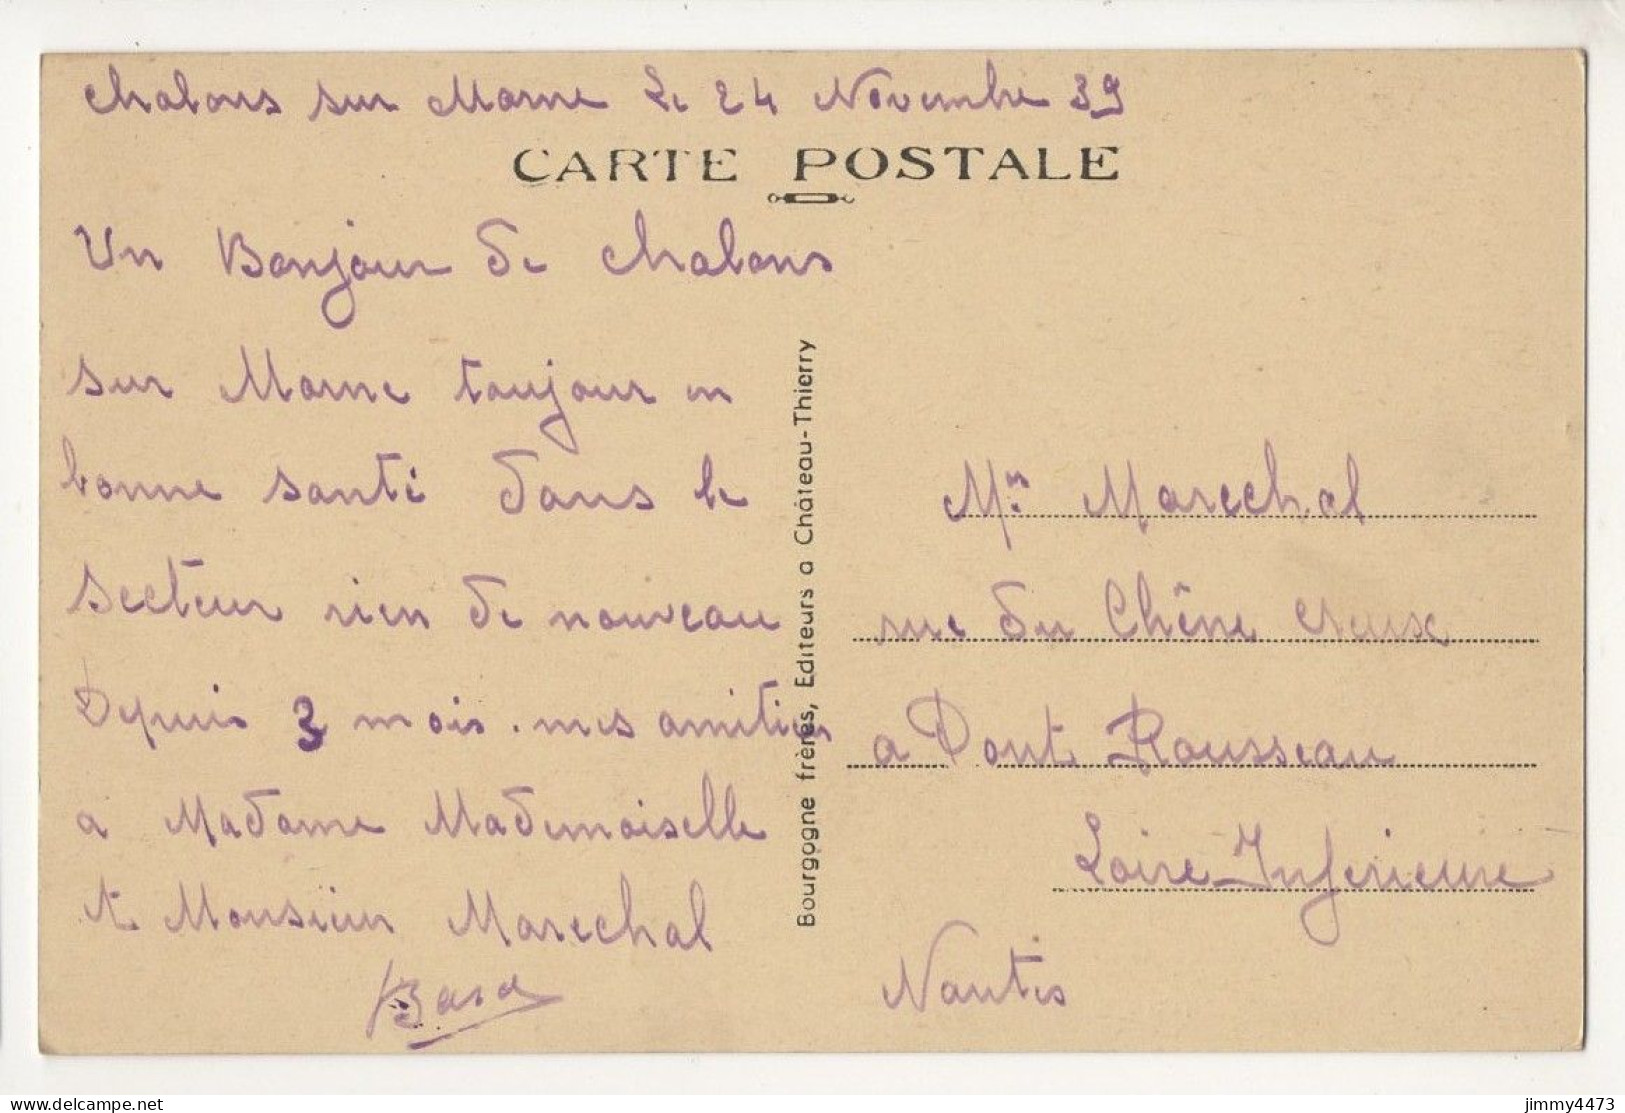 Chalons sur Marne Le 24 Novembre 39
CARTE POSTALE
Un Bonjour de Chalons
sur Marne toujour en
bonne santé dans le
secteur rien de nouveau
Depuis 3 mois. mes amities
a Madame Mademoiselle
et Monsieur Marechal
Bourgogne frères, Editeurs a Château-Thierry
Mr Marechal
rue du Chêne creux
a Pont Rousseau
Loire-Inferieure
Nantes
delcampe.net
jimmy4473